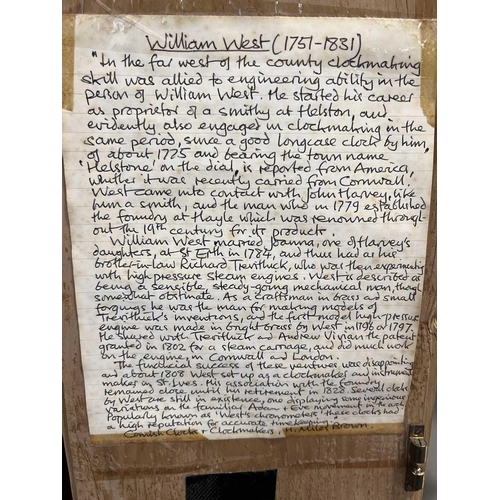 William West (1751-1831)
"In the far west of the county clockmaking
skill was allied to engineering ability in the
person of William West. He started his career
as proprietor of a smithy at Helston, and
evidently also engaged in clockmaking in the
same period, since a good longcase clock by him,
of about 1775 and bearing the town name
'Helstone' on the dial, is reported from America,
whether it was recently carried from Cornwall.
West came into contact with John Harvey, like
him a smith, and the man who in 1779 established
the foundry at Hayle which was renowned through-
out the 19th century for its products.
William West married Joanna, one of Harvey's
daughters, at St Erth in 1784, and thus had as his
brother-in-law Richard Trevithick, who was then experimenting
with high pressure steam engines. West is described as
being a sensible, steady-going mechanical man, though
somewhat obstinate. As a craftsman in brass and small
forgings he was the man for making models of
Trevithick's inventions, and the first model high-pressure
engine was made in bright brass by West in 1796 or 1797.
He shared with Trevithick and Andrew Vivian the patent
granted in 1802 for a steam carriage, and did much work
on the engine, in Cornwall and London.
The financial success of these ventures was disappointing
and about 1808 West set up as a clockmaker and instrument
maker in St Ives. His association with the foundry
remained close until his retirement in 1828. Several clocks
by West are still in existence, one displaying some ingenious
variations on the familiar Adam & Eve movement in the arch.
Popularly known as 'West chronometers' these clocks had
a high reputation for accurate time keeping."
Cornish Clocks & Clockmakers, H. Miles Brown.